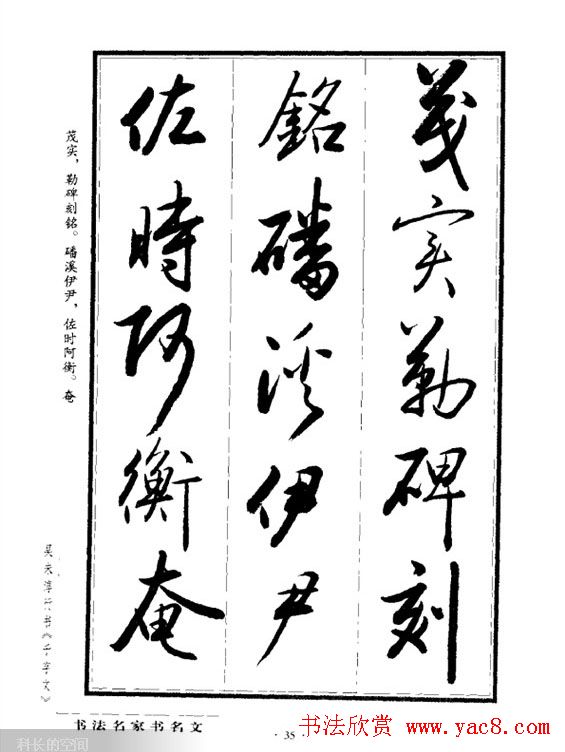 茂实勒碑刻
铭磻溪伊尹
佐時阿衡奄
茂实，勒碑刻铭。磻溪伊尹，佐时阿衡。奄
吴未淳行书《千字文》
书法名家书名文
·35
书法欣赏 www.yac8.com
科长的空间